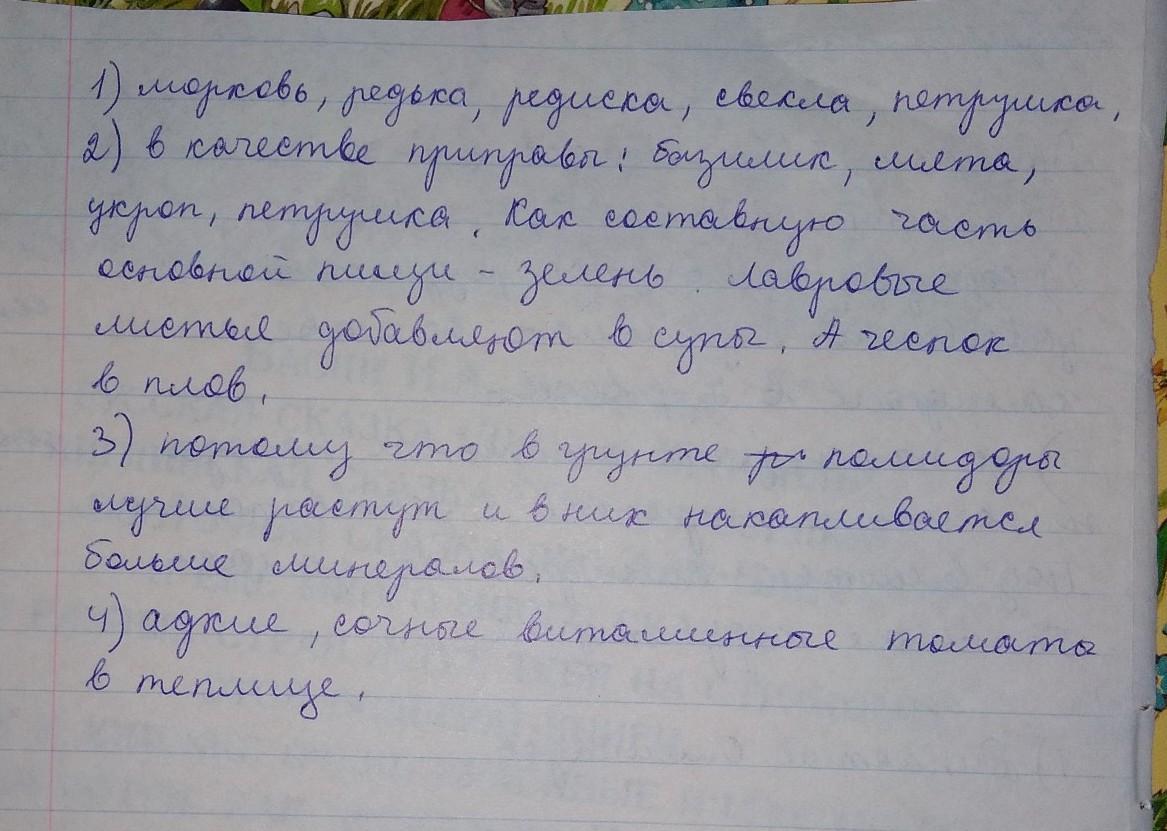 1) морковь, редька, редиска, свекла, петрушка,
2) в качестве приправы: базилик, мята,
укроп, петрушка. Как составную часть
основной пищи - зелень. Лавровые
листья добавляют в супы. А чеснок
в плов.
3) потому что в грунте помидоры
лучше растут и в них накапливается
больше минералов.
4) , сочные витаминные томаты
в теплице.